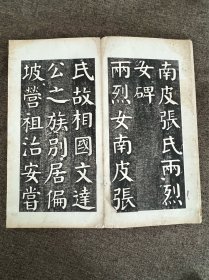 南皮張氏兩烈
女碑
兩烈女南皮張
氏故相國文達
公之族別居偏
坡營祖治安嘗